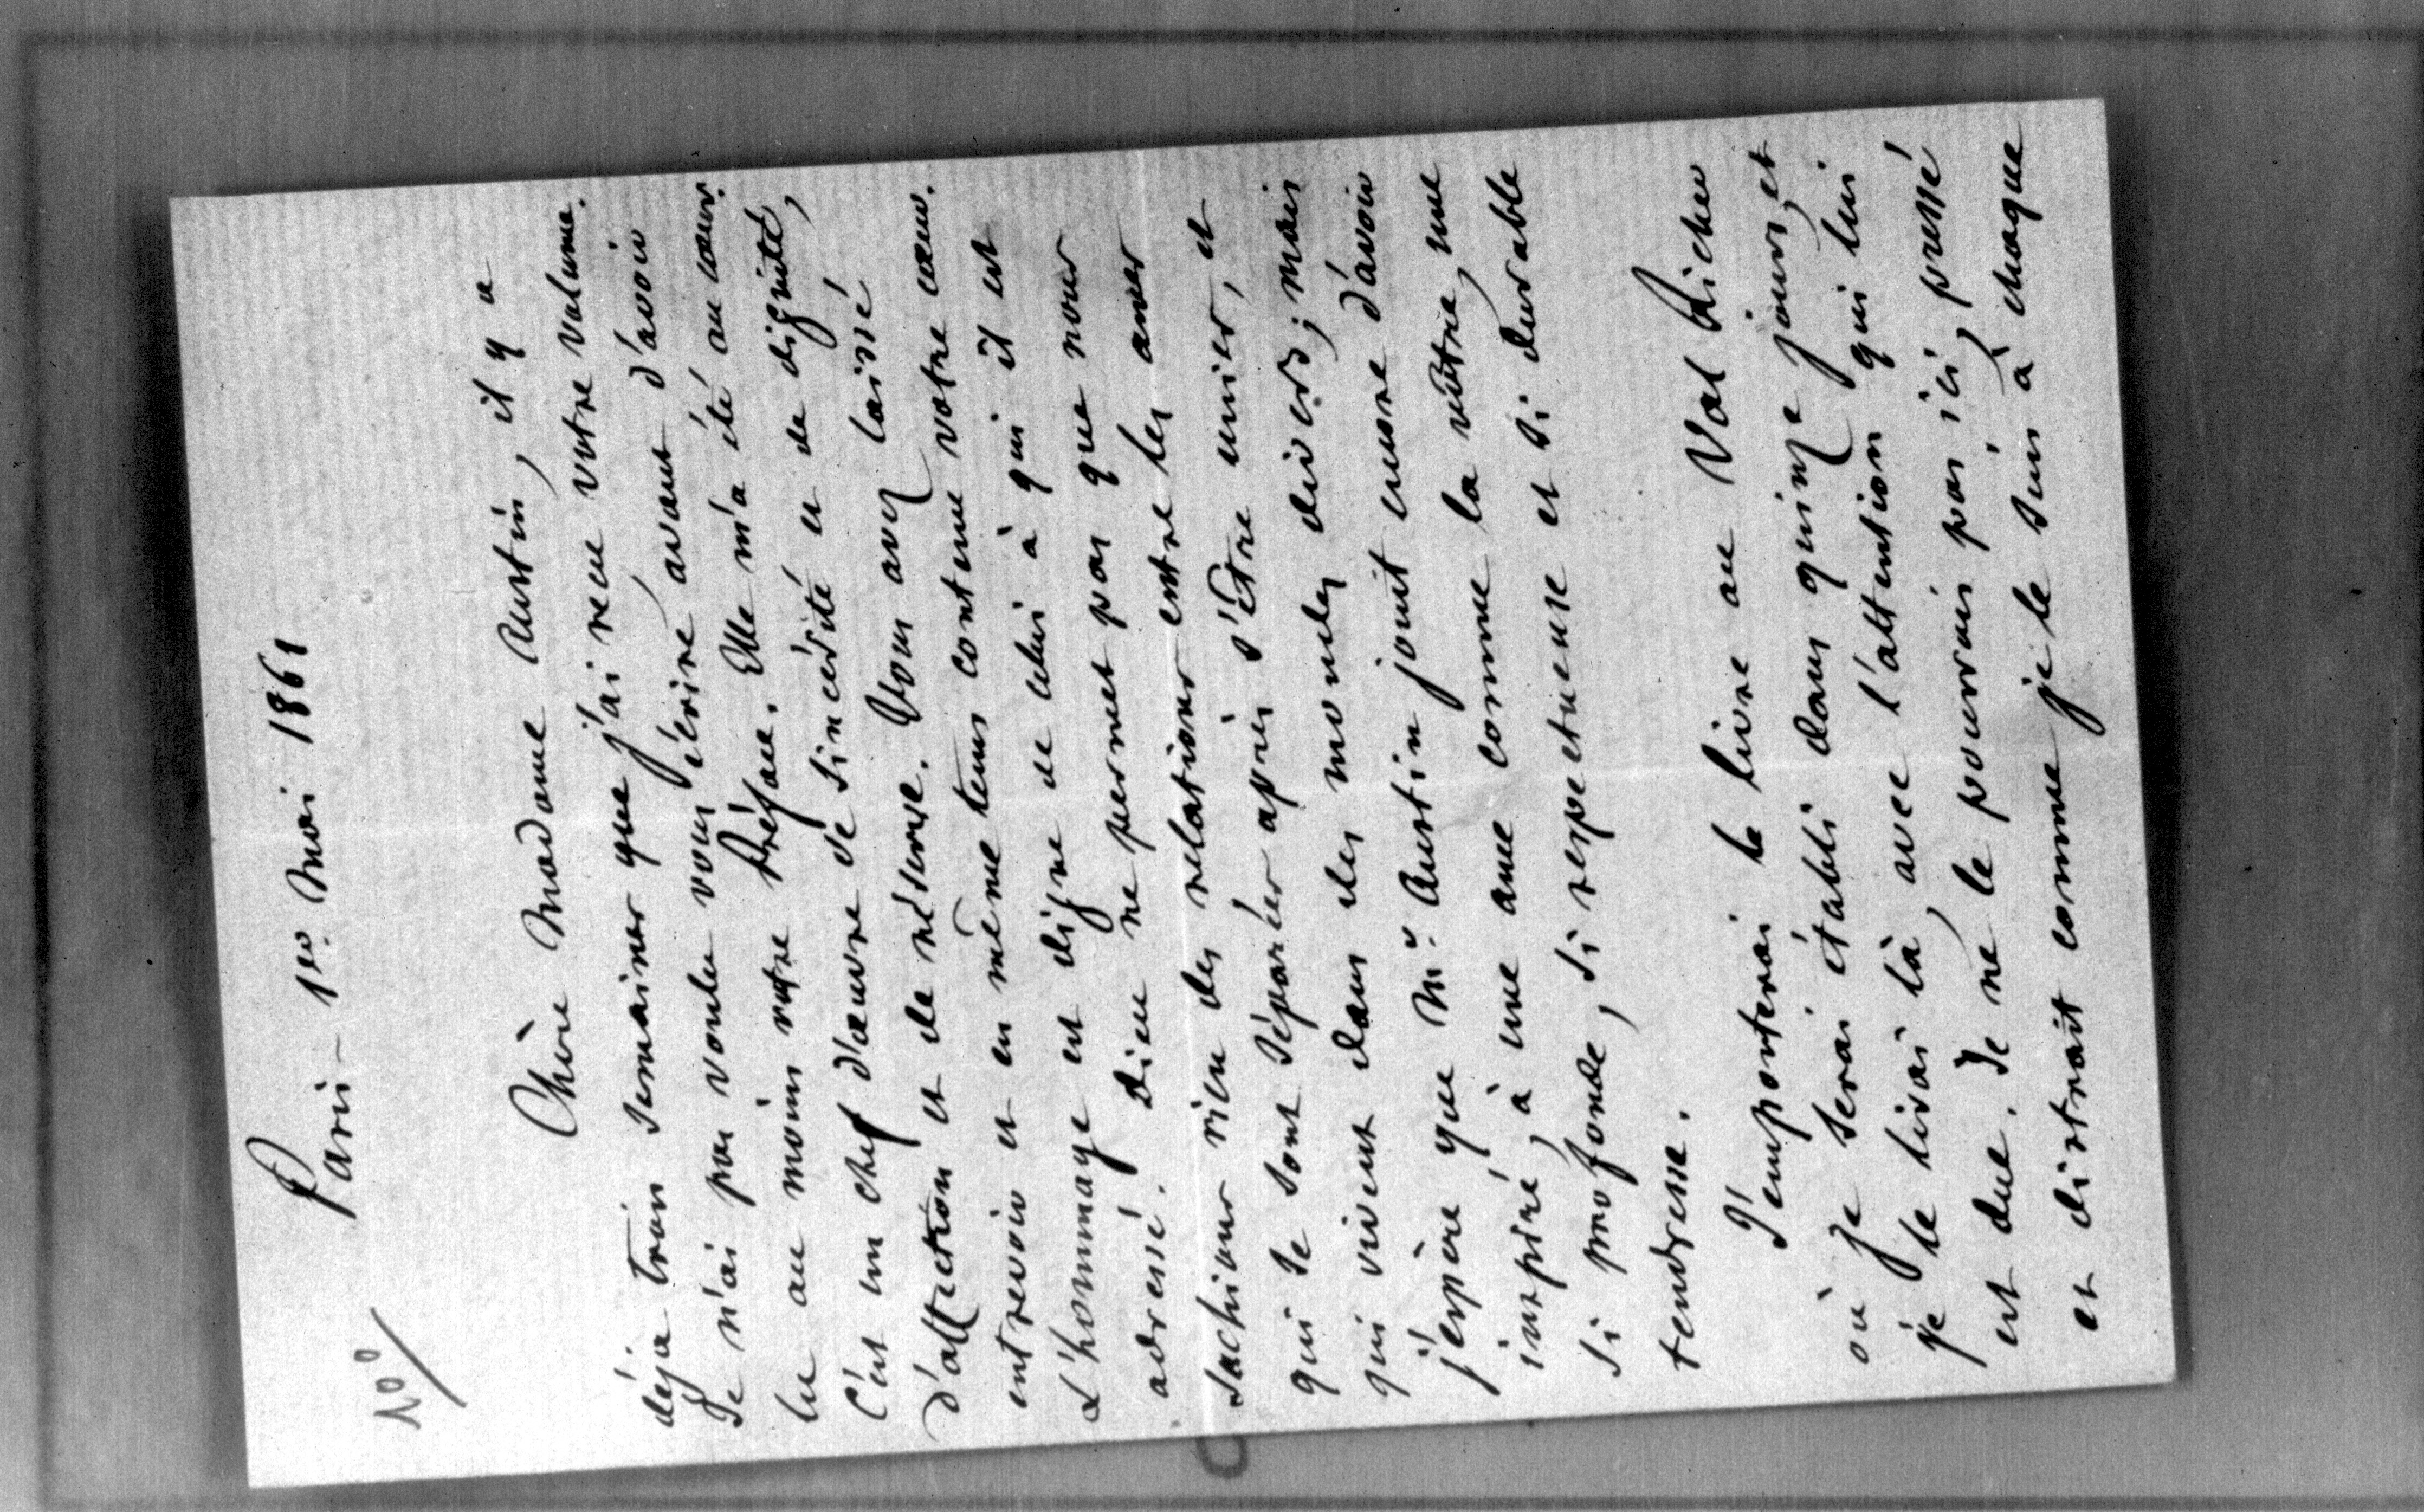 Paris – 1er Mai 1861
100/
Chère Madame Austin, il y a
déja trois semaines que j'ai reçu votre volume.
Je n'ai pas voulu vous écrire avant d'avoir
lu au moins votre Préface. Elle m'a été au cœur.
C'est un chef d'œuvre de sincérité et de dignité,
d'affection et de réserve. Vous avez laissé
entrevoir et en même tems contenu votre cœur.
L'hommage est digne de celui à qui il est
adressé. Dieu ne permet pas que nous
sachions rien des relations entre les ames
qui se sont séparées après s'être unies, et
qui vivent dans des mondes divers; mais
j'espère que Mr. Austin jouit encore d'avoir
inspiré, à une ame comme la vôtre, une
si profonde, si respectueuse et si durable
tendresse.
J'emporterai le livre au Val Richer
où je serai établi dans quinze jours, et
je le lirai là, avec l'attention qui lui
est due. Je ne le pourrais pas ici, pressé
et distrait comme je le suis à chaque